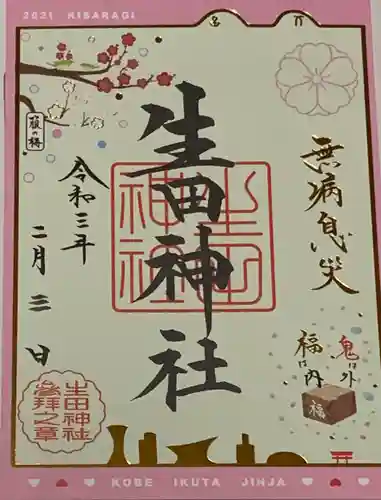 2021 KISARAGI
無病息災
鬼は外
福は内
福
生田神社
生田神社
箙の梅
令和三年
二月三日
生田神社
参拝之章
KOBE IKUTA JINJA